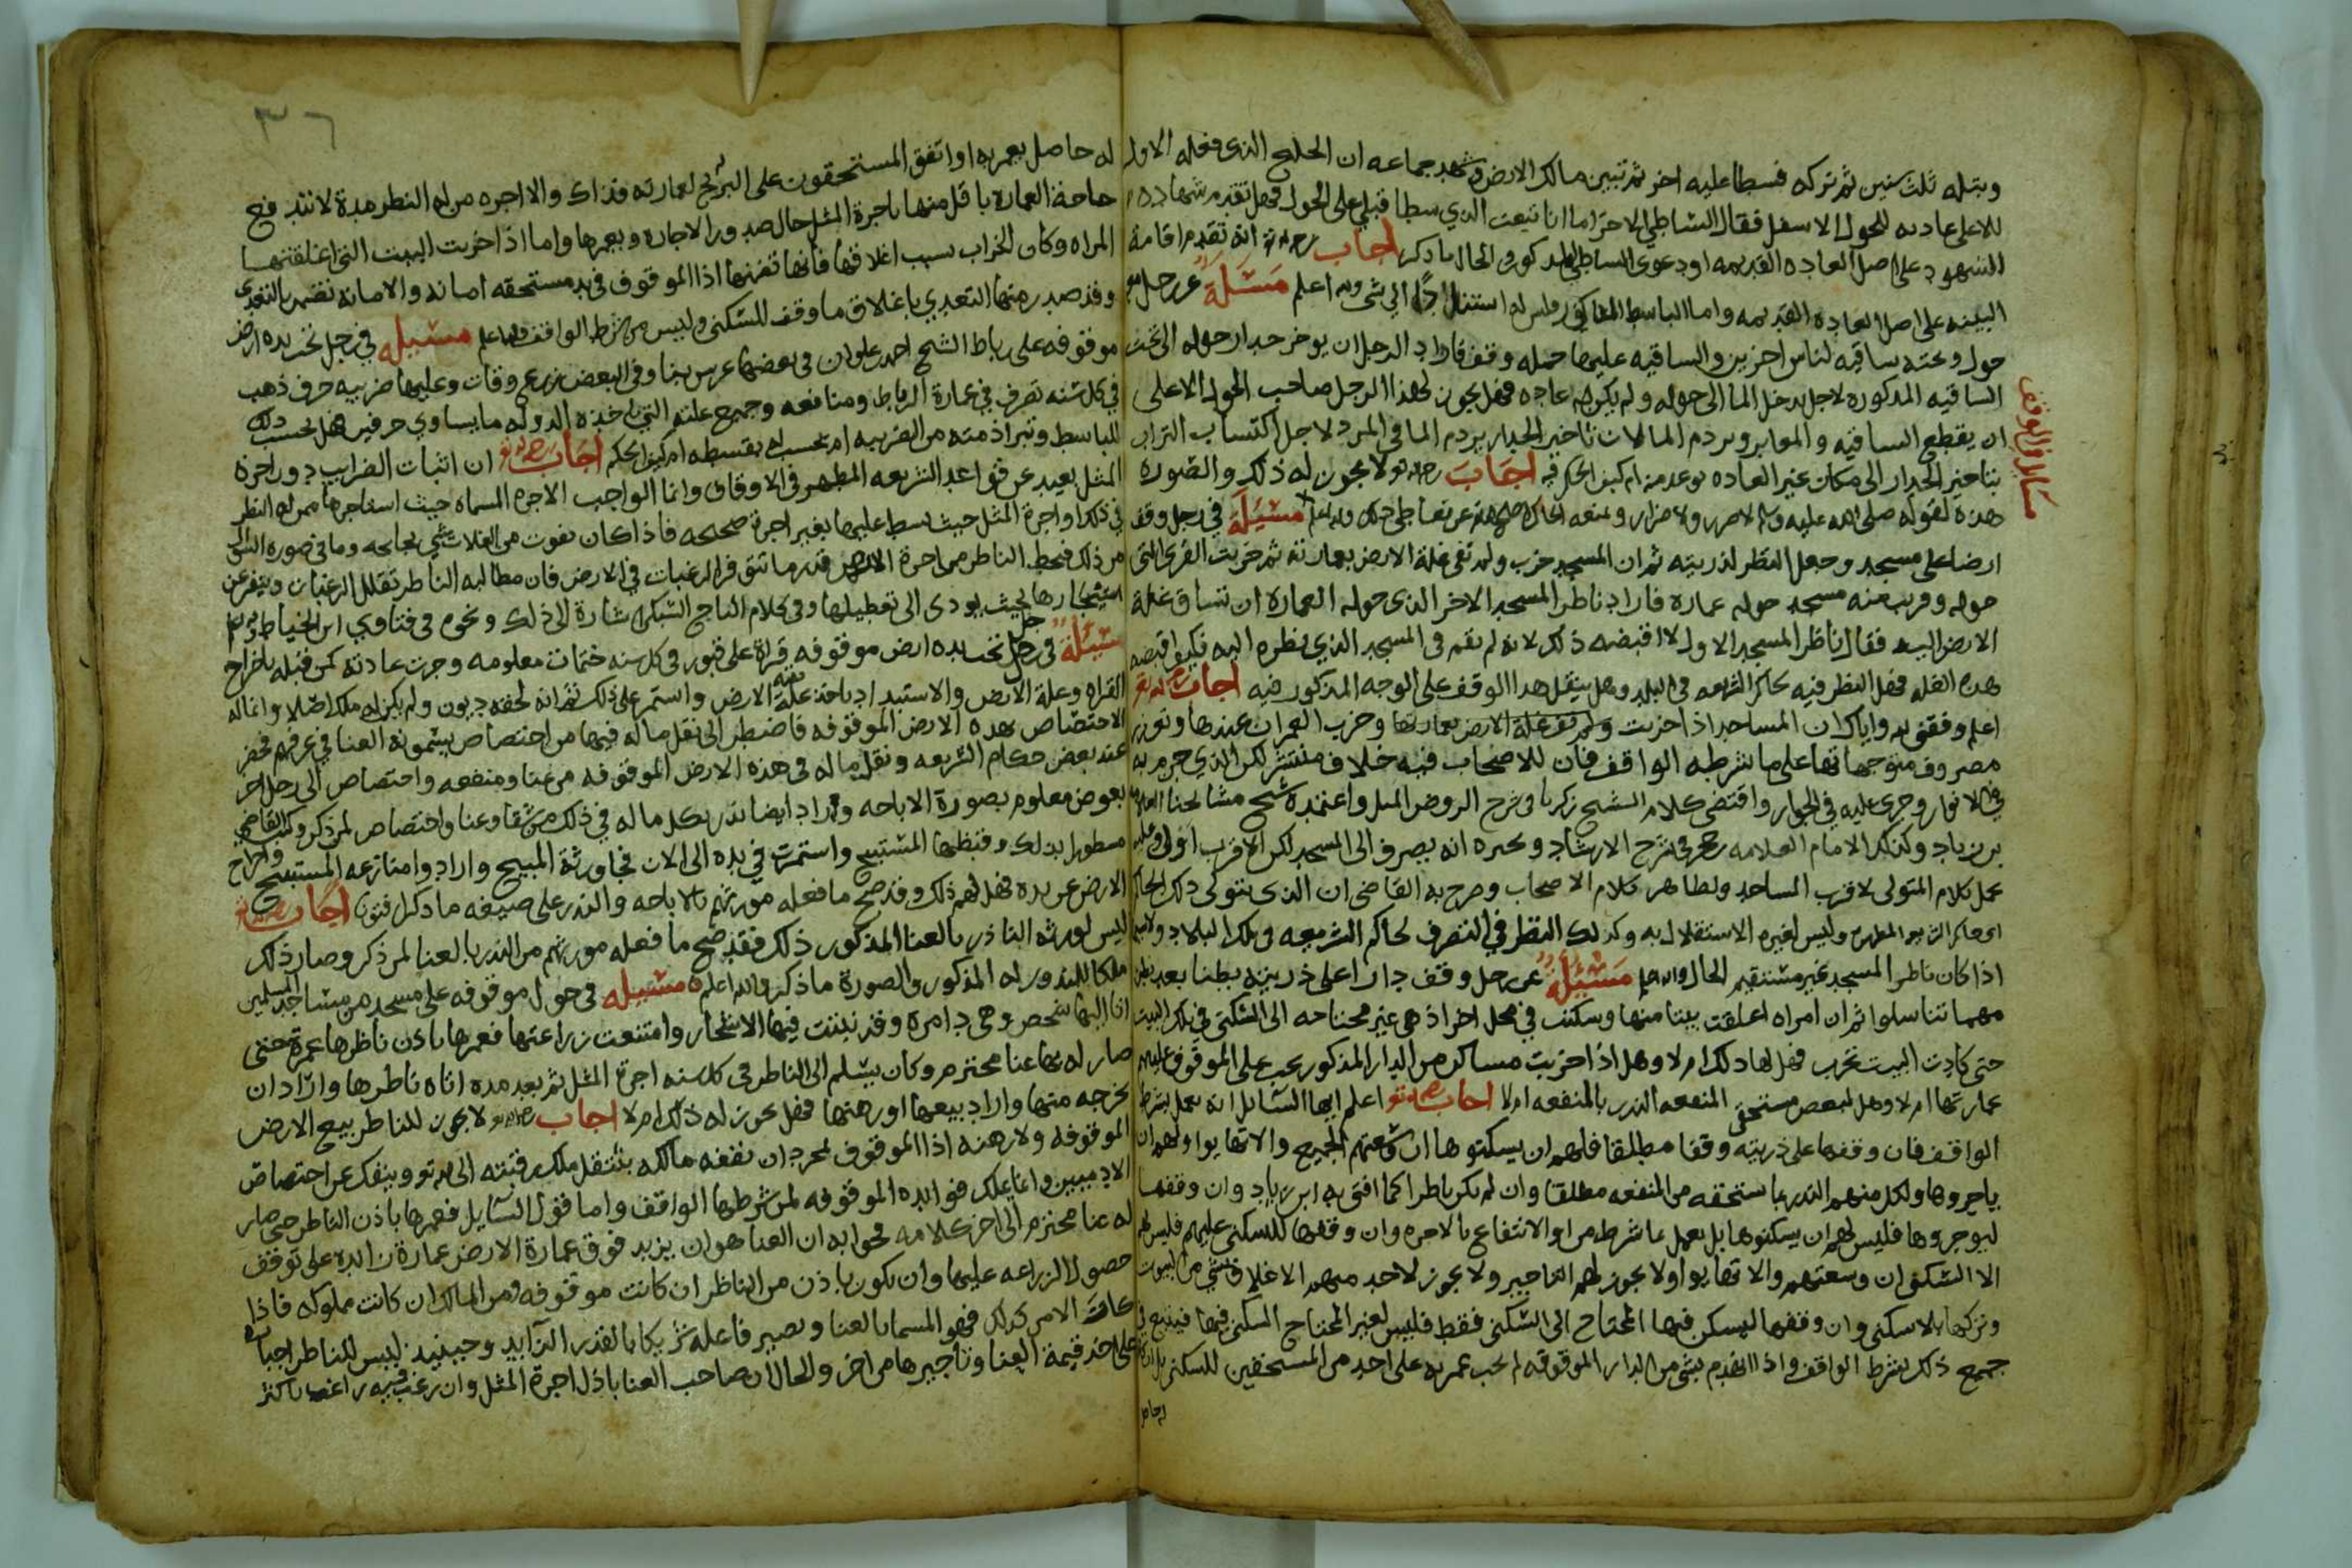 وبتله ثلث سنين ثم تركه فسطا عليه اخر ثم تبين مالك الارض وشهد جماعه ان الخلج الذى فعله الاول
للاعلى عاديه للحول الاسفل فقال الشاطي الاحترام انا تبعت الذي سطا قبلي على الحول فهل تقدم شهادة
الشهود على اصل العاده القديمه او دعوى الساطي المذكور والحال ما ذكر اجاب رحمه الله انه تقدم اقامة
البينه على اصل العاده القديمه واما الباسط المذكور فليس له استناد الى شي والله اعلم مسئلة عن رجل مع
حول وتحته ساقيه لناس اخرين والساقيه عليها جمله وقف فاراد الرجل ان يوخر جدار حوله الى تحت
الساقيه المذكوره لاجل يدخل الما الى حوله ولم يكن له عاده فهل يجوز لهذا الرجل صاحب الحول الاعلى
ان يقطع الساقيه والمعابر ويردم الما لان تاخير الجدار يردم الما في المرد لاجل اكتساب التراب
بتاخير الجدار الى مكان غير العاده بوعد منه ام كيف الحكم فيه اجاب رحمه الله لا يجوز له ذلك والصوره
هذه لقوله صلى الله عليه وسلم لا ضرر ولا ضرار ويمنعه الحاكم عن تعاطي ذلك والله اعلم مسئلة في رجل وقف
ارضا على مسجد وجعل النظر لذريته ثم ان المسجد خرب ولم تفي غلة الارض بعمارته ثم خربت القرى التى
حوله وقريب منه مسجد حوله عماره فاراد ناظر المسجد الاخر الذى حوله العماره ان تساق غلة
الارض اليه فقال ناظر المسجد الاول لا اقبضه ذلك لانه لم يقم فى المسجد الذي نظره اليه فكيف قبضه
هذه الغله فهل النظر فيه لحاكم الشريعه في البلد وهل ينقل هذا الوقف على الوجه المذكور فيه اجاب رحمه الله
اعلم وفقني الله واياك ان المساجد اذا خربت ولم تف غلة الارض بعمارتها وخرب العمران عندها وتعذر
مصروف منوجهاتها على ما شرطه الواقف فان للاصحاب فيه خلاف منتشر لكن الذي جزم به
في الانوار وجرى عليه في الجواهر واقتضى كلام الشيخ زكريا في شرح الروض الميل واعتمده شيخ مشايخنا العلامه
بن زياد وكذلك الامام العلامه رحمه في شرح الارشاد وغيره انه يصرف الى المسجد لكن الاقرب اولى وعليه
عمل كلام المتولى لاقرب المساجد ولظاهر كلام الاصحاب وصرح به القاضي ان الذى يتولى ذلك الحاكم
اى حاكم الشريعه المطهره وليس لغيره الاستقلال به وكذلك النظر في التصرف لحاكم الشريعه في ملك البلاد ولاسيما
اذا كان ناظر المسجد غير مستقيم الحال والله اعلم مسئلة عن رجل وقف دارا على ذريته بطنا بعد بطن
مهما تناسلوا ثم ان امراه اغلقت بيتا منها وسكنت في محل اخر اذ هى غير محتاجه الى السكنى في تلك البيت
حتى كادت البيت تخرب فهل لها ذلك ام لا وهل اذا خربت مساكن من الدار المذكور يجب على الموقوف عليهم
عمارتها ام لا وهل لبعض مستحقى المنفعه النذر بالمنفعه ام لا اجاب رحمه الله اعلم ايها السايل انه يعمل بشرط
الواقف فان وقفها على ذريته وقفا مطلقا فلهم ان يسكنوها ان وسعتهم الجميع والا تهايوا ولهم ان
ياجروها ولكل منهم النذر بما ستحقه من المنفعه مطلقا وان لم يكن ناظرا كما افتى به ابن زياد وان وقفها
ليوجروها فليس لهم ان يسكنوها بل يعمل بما شرط من اوالانتفاع بالاجره وان وقفها للسكنى عليهم فليس لهم
الا السكنى ان وسعتهم والا تهايوا ولا يجوز لهم التاجير ولا يجوز لاحد منهم الاغلاق شي من البيوت
وتركها بلا سكنى وان وقفها ليسكن فيها المحتاج الى السكنى فقط فليس لغير المحتاج السكنى فيها فيتبع في
جميع ذلك شرط الواقف واذا انهدم شي من الدار الموقوفه لم يجب عمره على احد من المستحقين للسكنى بل ان كان
له حاصل
مسائل في الوقف
٣٦
له حاصل يعمر به او اتفق المستحقون على التبرع لعمارته فذاك والا اجره من له النظر مدة لا تتد فع
حاجة العماره باقل منها باجرة المثل حال صدور الاجاره ويعمرها واما اذا خربت البيت التي اغلقتها
المراه وكان الخراب سبب اغلاقها فانها تضمنها اذ الموقوف في يد مستحقه امانه والامانه تضمن بالتعدى
وقد صدر منها التعدي باغلاق ما وقف للسكنى وليس من شرط الواقف والله اعلم مسئيله في رجل تحت يده ارض
موقوفه على رباط الشيخ احمد علوان في بعضها غرس بنا وفي البعض زرع وقات وعليها ضريبه حرف ذهب
في كل سنه تصرف في عمارة الرباط ومنافعه وجميع غلته التي ياخذه الدوله ما يساوي حرفين هل يحسب ذلك
للباسط وتبرا ذمته من الضريبه ام يحسب له بقسطه ام كيف الحكم اجاب رحمه الله ان اثبات الضرايب دور اجرة
المثل بعيد عن قواعد الشريعه المطهره في الاوقاف وانما الواجب الاجره المسماه حيث استاجرها ممن له النظر
في ذلك او اجرة المثل حيث بسط عليها بغير اجرة صحيحه فاذا كان يفوت من الغلات شي بجائحه وما في صوره السوال
من ذلك فيحط الناظر من اجرة الارض قدر ما تتوفر الرغبات في الارض فان مطالبه الناظر تقلل الرغبات وينفر عن
استيجارها بحيث يودى الى تعطيلها وفي كلام التاج السبكي اشارة الى ذلك ونحوه في فتاوي ابن الخياط والله اعلم
مسئلة في رجل تحت يده ارض موقوفه قراة على قبور في كل سنه ختمات معلومه وجرت عادته كمن قبله باخراج
القراه وغلة الارض والاستبداد باخذ بقية غلة الارض واستمر على ذلك ثم انه لحقه ديون ولم يكن له ملك اصلا وانما له
الاختصاص بهذه الارض الموقوفه فاضطر الى نقل ما له فيها من اختصاص يسمونه العنا في عرفهم فحضر
عند بعض حكام الشريعه ونقل ما له في هذه الارض الموقوفه من عنا ومنفعه واختصاص الى رجل اخر
بعوض معلوم بصورة الاباحه وزاد ايضا نذر بكل ما له في ذلك من شقا وعنا واختصاص لمن ذكر وكتب القاضي
مسطورا بذلك وقبضها المستبيح واستمرت في يده الى الان فجا ورثة المبيح وارادوا منازعه المستبيح واخراج
الارض عن يده فهل لهم ذلك وقد صح ما فعله مورثهم بالاباحه والنذر على صيغه ما ذكر افتونا اجاب رحمه الله
ليس لورثه الناذر بالعنا المذكور ذلك فقد صح ما فعله مورثهم من النذر بالعنا لمن ذكر وصار ذلك
ملكا للمنذور له المذكور والصورة ما ذكر والله اعلم مسئيله في حول موقوفه على مسجد من مساجد المسلمين
اتا اليها شخص وهي دامره وقد نبتت فيها الاشجار وامتنعت زراعتها فعمرها باذن ناظرها عمرة حتى
صار له بها عنا محترم وكان يسلم الى الناظر في كل سنه اجرة المثل ثم بعد مده اتاه ناظرها واراد ان
يخرجه منها واراد بيعها او رهنها فهل يجوز له ذلك ام لا اجاب رحمه الله لا يجوز للناظر بيع الارض
الموقوفه ولا رهنه اذ الموقوف لمجرد ان نفعه مالكه ينتقل ملك رقبته الى الله تعو وينفك عن اختصاص
الادميين وانما يملك فوائده الموقوفه لمن شرطها الواقف واما قول السايل فعمرها باذن الناظر حتى صار
له عنا محترم الى اخر كلامه فجوابه ان العنا هو ان يزيد فوق عمارة الارض عمارة زائده على توقف
حصول الزراعه عليها وان يكون باذن من الناظر ان كانت موقوفه ومن المالك ان كانت مملوكه فاذا
كان الامر كذلك فهو المسما بالعنا ويصير فاعله شريكا بالقدر الزايد وحينيذ ليس للناظر اجباره
على اخذ قيمة العنا وتاجيرها من اخر والحال ان صاحب العنا باذل اجرة المثل وان رغب فيه راغب باكثر